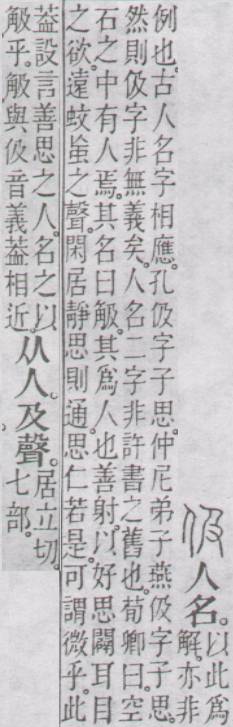 伋人名。以此爲
解。亦非
例也。古人名字相應。孔伋字子思。仲尼弟子燕伋字子思。
然則伋字非無義矣。人名二字非許書之舊也。荀卿曰。空
石之中有人焉。其名曰觙。其爲人也善射。以好思。闢耳目
之欲。遠蚊䖟之聲。閑居靜思則通。思仁若是。可謂微乎。此
葢設言善思之人。名之以
觙乎。觙與伋音義葢相近。
从人。及聲。居立切。
七部。